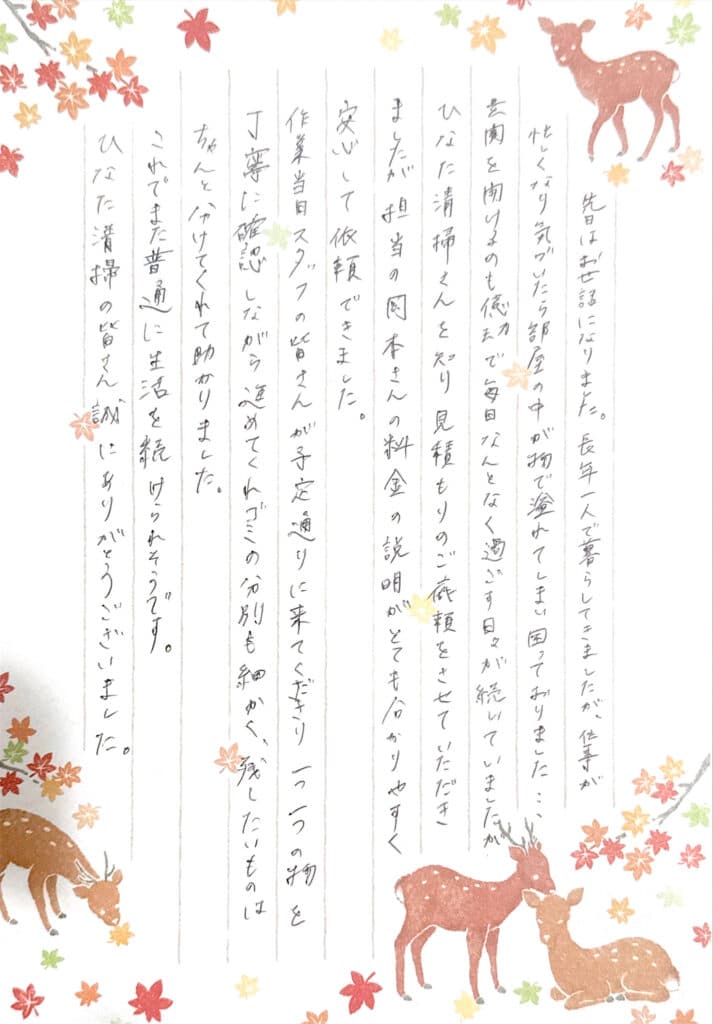 先日はお世話になりました。長年一人で暮らしてきましたが、仕事が
忙しくなり気づいたら部屋の中が物で溢れてしまい困っておりました…
玄関を開けるのも億劫で毎日なんとなく過ごす日々が続いていましたが
ひなた清掃さんを知り見積もりのご依頼をさせていただき
ましたが担当の岡本さんの料金の説明がとても分かりやすく
安心して依頼できました。
作業当日スタッフの皆さんが予定通りに来てくださり一つ一つの物を
丁寧に確認しながら進めてくれゴミの分別も細かく、残したいものは
ちゃんと分けてくれて助かりました。
これでまた普通に生活を続けられそうです。
ひなた清掃の皆さん誠にありがとうございました。